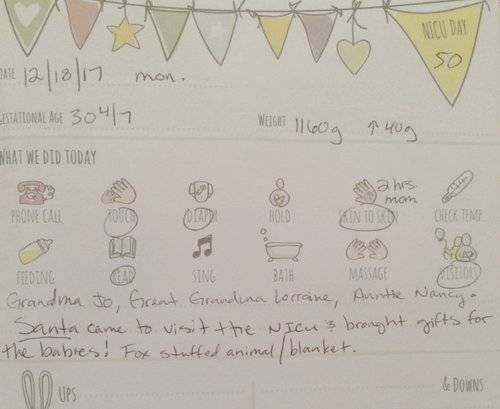 NICU DAY
50
DATE 12/18/17 mon.
GESTATIONAL AGE 30 4/7 WEIGHT 1160g ↑40g
WHAT WE DID TODAY
2 hrs
mom
PHONE CALL TOUCH DIAPER HOLD SKIN TO SKIN CHECK TEMP
FEEDING READ SING BATH MASSAGE VISITORS
Grandma Jo, Great Grandma Lorraine, Auntie Nancy.
Santa came to visit the NICU & brought gifts for
the babies! Fox stuffed animal/blanket.
UPS & DOWNS